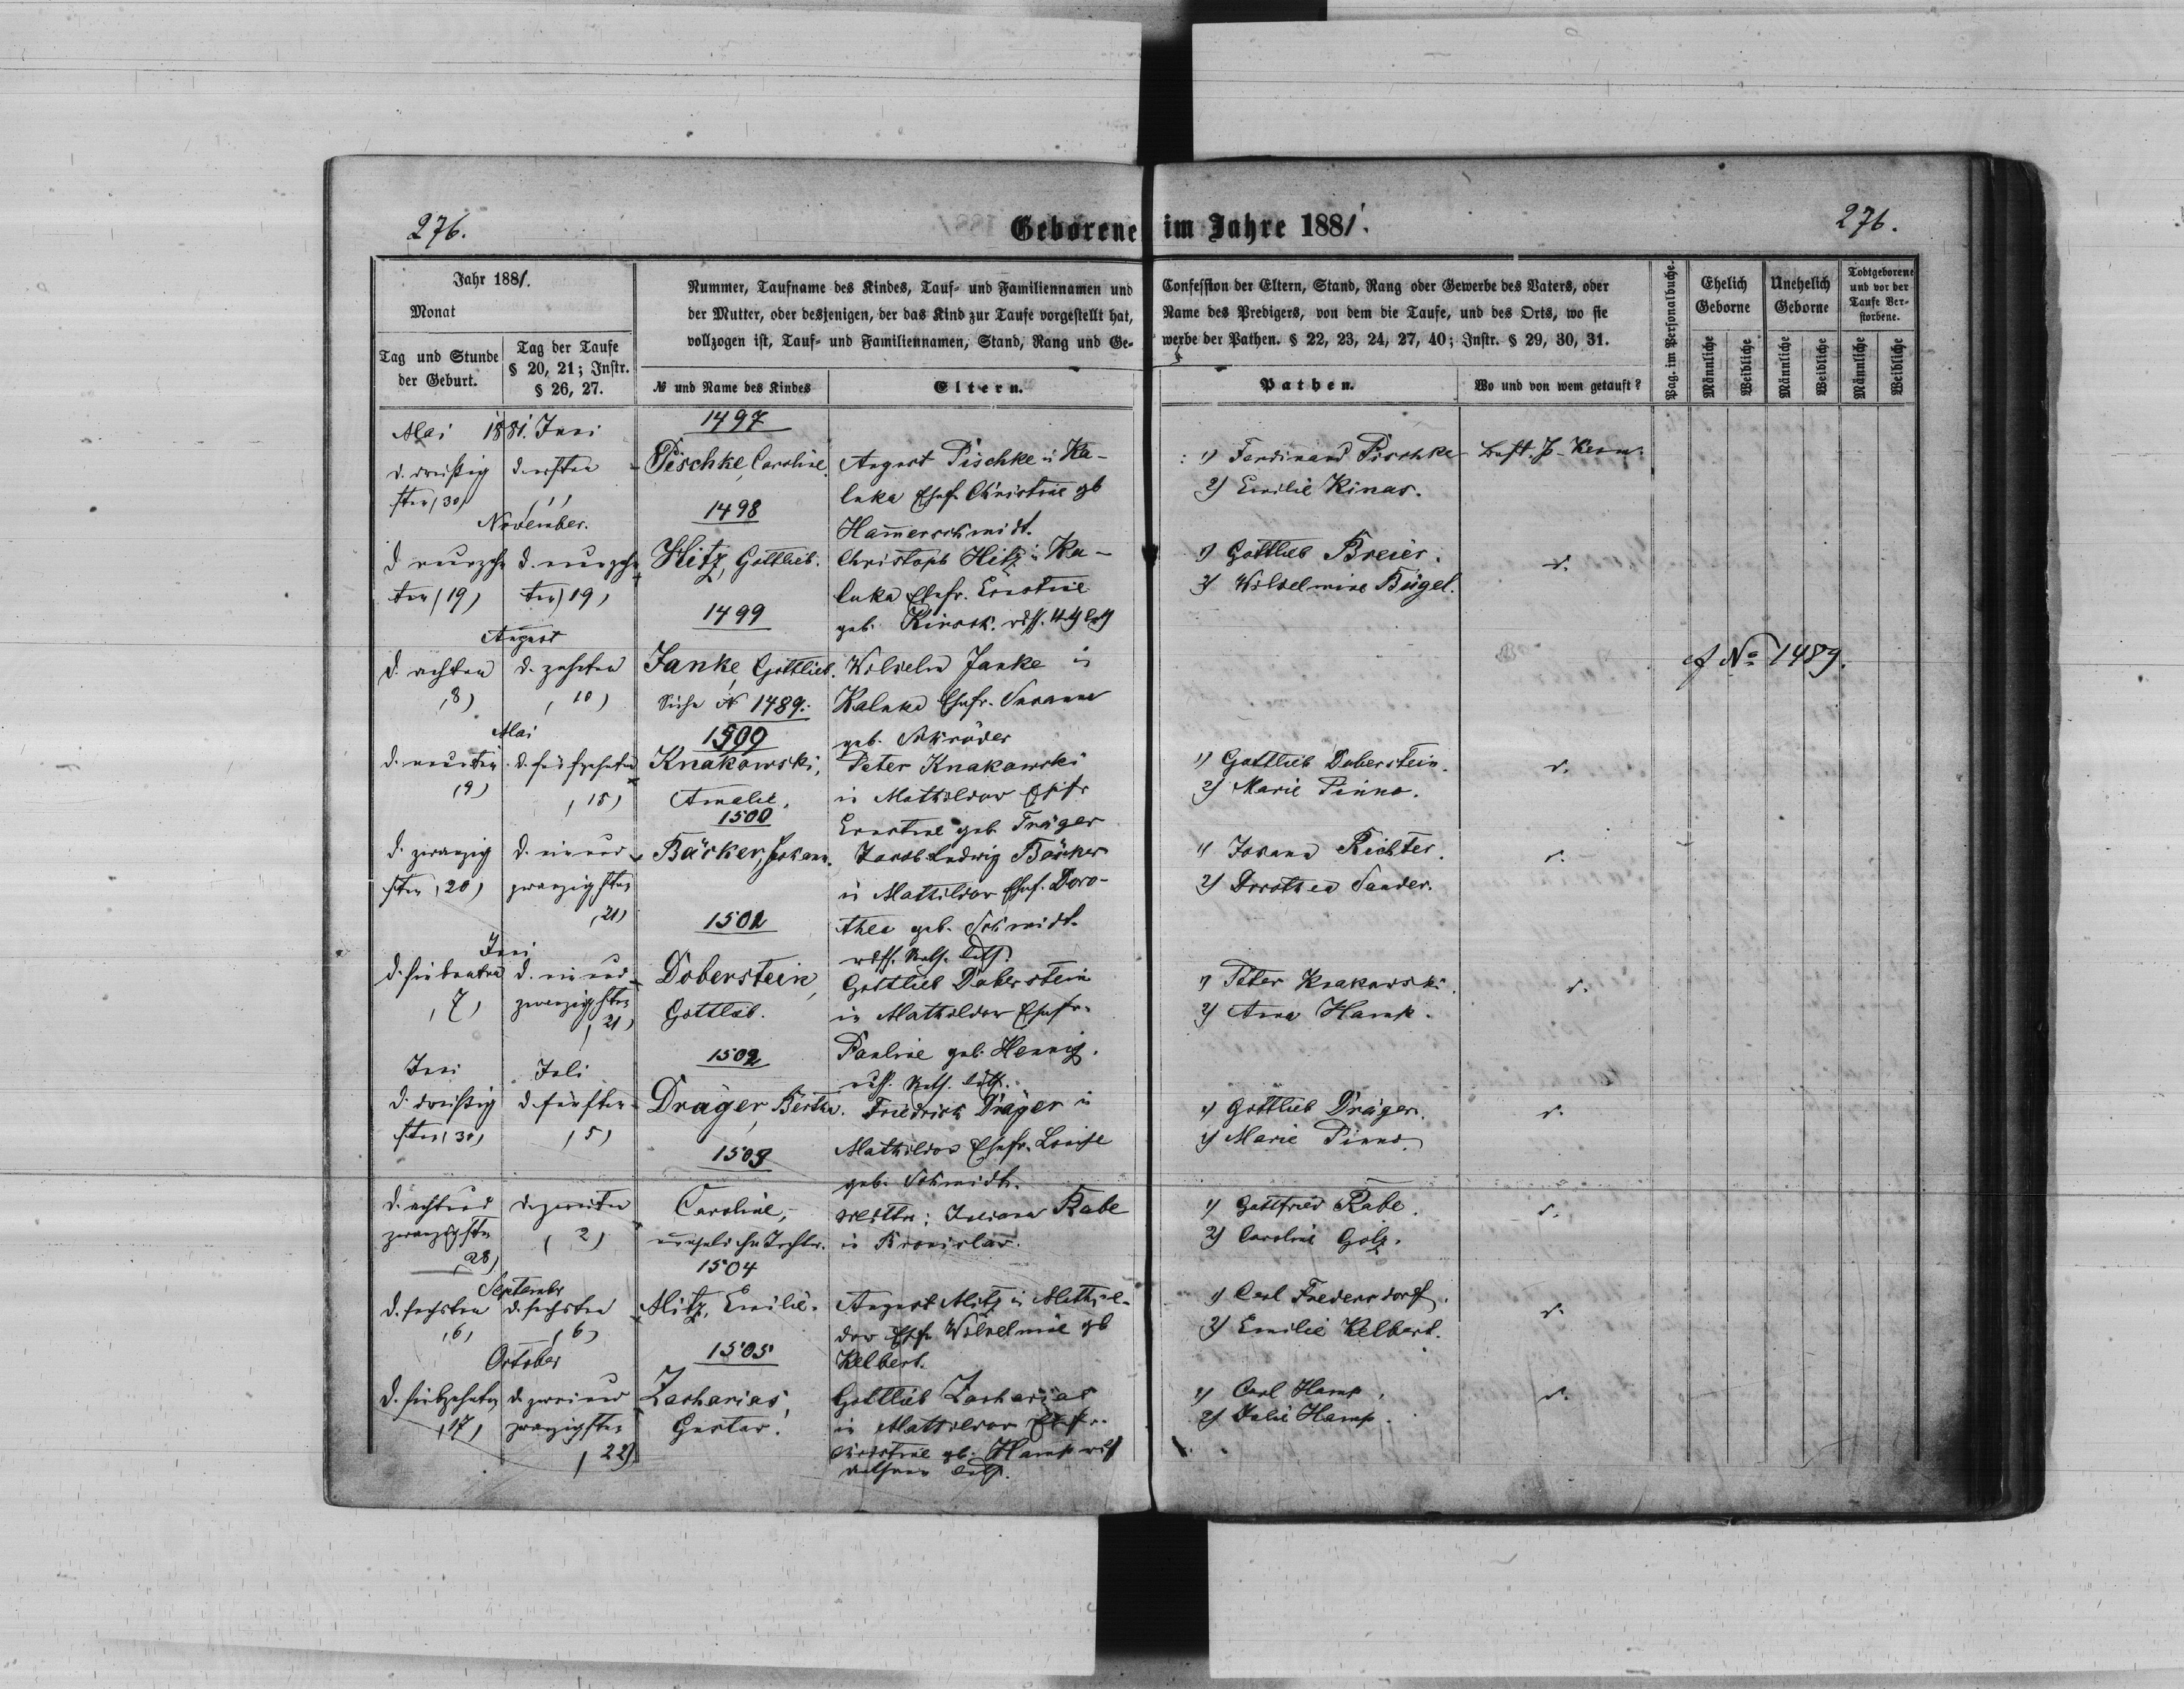 276.
Geborene im Jahre 1881.
276.
Jahr 1881.
Monat
Tag und Stunde der Geburt.
Tag der Taufe § 20, 21; Instr. § 26, 27.
Nummer, Taufname des Kindes, Tauf- und Familiennamen und
der Mutter, oder desjenigen, der das Kind zur Taufe vorgestellt hat,
vollzogen ist, Tauf- und Familiennamen, Stand, Rang und Ge-
№ und Name des Kindes
Eltern.
Confession der Eltern, Stand, Rang oder Gewerbe des Vaters, oder
Name des Predigers, von dem die Taufe, und des Orts, wo sie
werbe der Pathen. § 22, 23, 24, 27, 40; Instr. § 29, 30, 31.
Pathen.
Wo und von wem getauft?
Pag. im Personalbuche.
Ehelich Geborne
Unehelich Geborne
Todtgeborene und vor der Taufe Verstorbene.
Männliche
Weibliche
Männliche
Weibliche
Männliche
Weibliche
Mai 1881. Juni
1497
d. dreißig
d. ersten
Pischke, Caroline
August Pischke in Ka-
1) Ferdinand Pischke
sten (30)
(1)
luka Ehefr. Christine gb
2) Emilie Kinas.
November.
1498
Hamerschmidt.
d. neunzehn
d. neunzehn
Hitz, Gottlieb.
Christoph Hitz in Ka-
1) Gottlieb Breier.
d.
ten (19)
ten (19)
luka Ehefr. Ernstine
2) Wilhelmine Bügel.
1499
geb. Kirsch.
August
d. achten
d. zehnten
Janke, Gottlieb.
Wilhelm Janke in
cf № 1489.
(8)
(10)
Siehe № 1489.
Kaluka Ehefr. Susanna
Mai
1500
geb. Schröder
d. neunten
d. fünfzehnten
Knakowski,
Peter Knakowski
1) Gottlieb Doberstein.
d.
(9)
(15)
Amalie.
in Mathildow Ehefr
2) Marie Pinno.
1500
Ernstine geb. Träger
d. zwanzig
d. ein und
Bäcker, Johann.
Jacob Ludwig Bäcker
1) Johann Richter.
d.
sten (20)
zwanzigsten
in Mathildow Ehefr. Doro-
2) Dorothea Sander.
(21)
1501
thea geb. Schmidt.
Juni
d. siebenten
d. ein und
Doberstein,
Gottlieb Doberstein
1) Peter Knakowski.
d.
(7)
zwanzigsten
(21)
Gottlieb.
in Mathildow Ehefr.
2) Anna Hamp.
1502
Pauline geb. Hennig.
Juni
Juli
d. dreißig
d. fünften
Dräger, Bertha.
Friedrich Dräger in
1) Gottlieb Dräger.
d.
sten (30)
(5)
Mathildow Ehefr. Louise
2) Marie Pinno.
1503
geb. Schmidt.
d. acht und
d. zweiten
Caroline,
Mutter: Juliana Rabe
1) Gottfried Rabe.
d.
zwanzigsten
(2)
uneheliche Tochter.
in Bronislaw.
2) Caroline Golz.
(28)
1504
September
d. sechsten
d. sechsten
Mitz, Emilie.
August Mitz in Mathil-
1) Carl Fredersdorf.
d.
(6)
(6)
dow Ehefr. Wilhelmine gb
2) Emilie Kelbert.
October
1505
Kelbert.
d. siebzehnten
d. zwei und
Zacharias,
Gottlieb Zacharias
1) Carl Hamp.
d.
(17)
zwanzigsten
Gustav.
in Mathildow Ehefr.
2) Julie Hamp.
(22)
Christine gb. Hamp